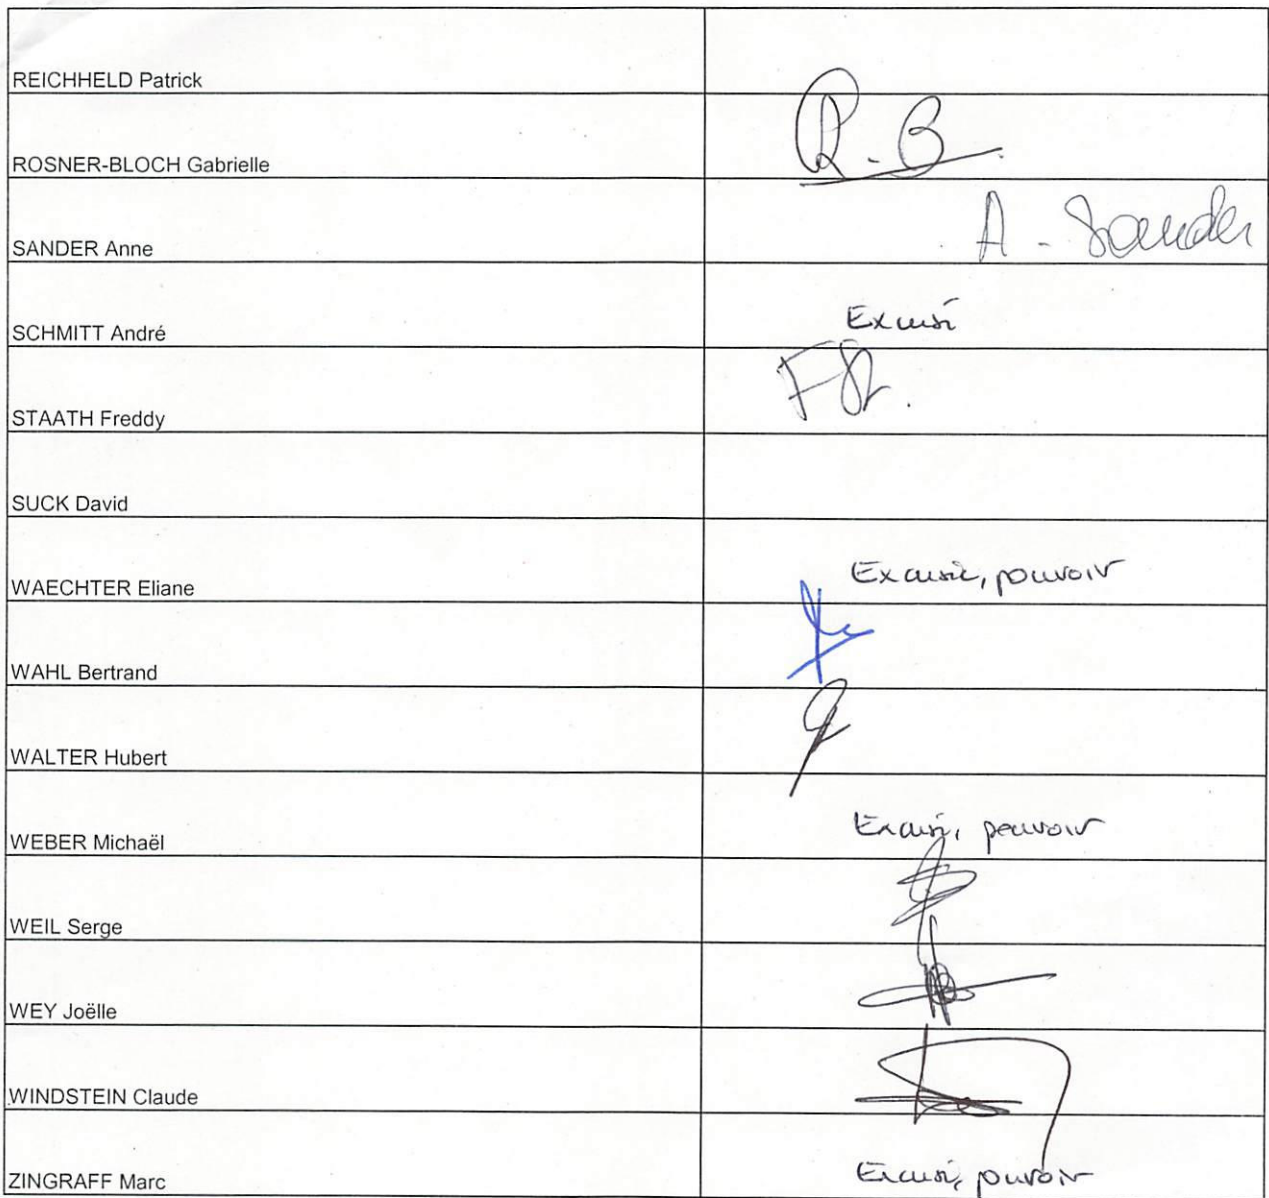 REICHHELD Patrick
ROSNER-BLOCH Gabrielle
R. B.
SANDER Anne
A - Sander
SCHMITT André
Excusé
STAATH Freddy
FSt.
SUCK David
WAECHTER Eliane
Excusée, pouvoir
WAHL Bertrand
WALTER Hubert
WEBER Michaël
Excusé, pouvoir
WEIL Serge
WEY Joëlle
WINDSTEIN Claude
ZINGRAFF Marc
Excusé, pouvoir